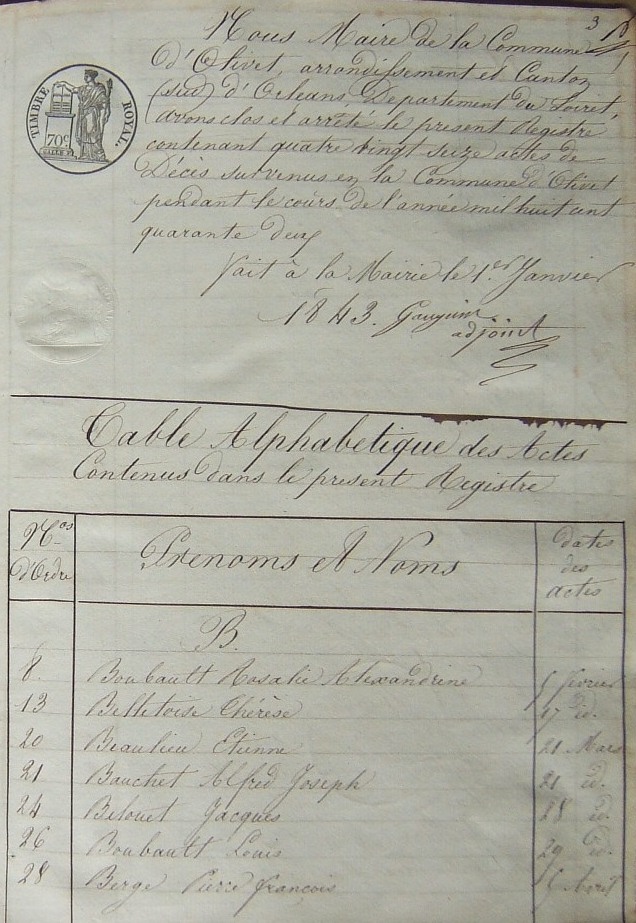 3
Nous Maire de la Commune
d'Olivet, arrondissement et Canton
(sud) d'Orléans, Departement du Loiret,
avons clos et arrêté le present Registre
contenant quatre vingt seize actes de
Décès survenus en la Commune d'Olivet
pendant le cours de l'année mil huit cent
quarante deux
Fait à la Mairie le 1er Janvier
1843.
adjoint
TIMBRE ROYAL.
70c
Table Alphabetique des Actes
Contenus dans le present Registre
Nos d'Ordre
Prenoms et Noms
dates des actes
B.
8. Boubault Rosalie Alexandrine février
13 Belletoise Thérèse 17 id.
20 Beaulieu Etienne 21 Mars
21 Bauchet Alfred Joseph 21 id.
24 Belouet Jacques 28 id.
26 Boubault Louis 29 id.
28 Berge Pierre françois Avril